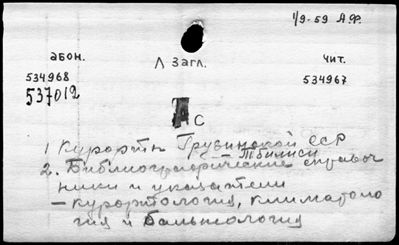 1/9-59 А.Ф.
абон.
Λ загл.
чит.
534968
534967
537012
АС
1 Курорты Грузинской ССР
– Тбилиси
2. Библиографические справоч
ники и указатели
– курортология, климатоло
гия и бальнеология